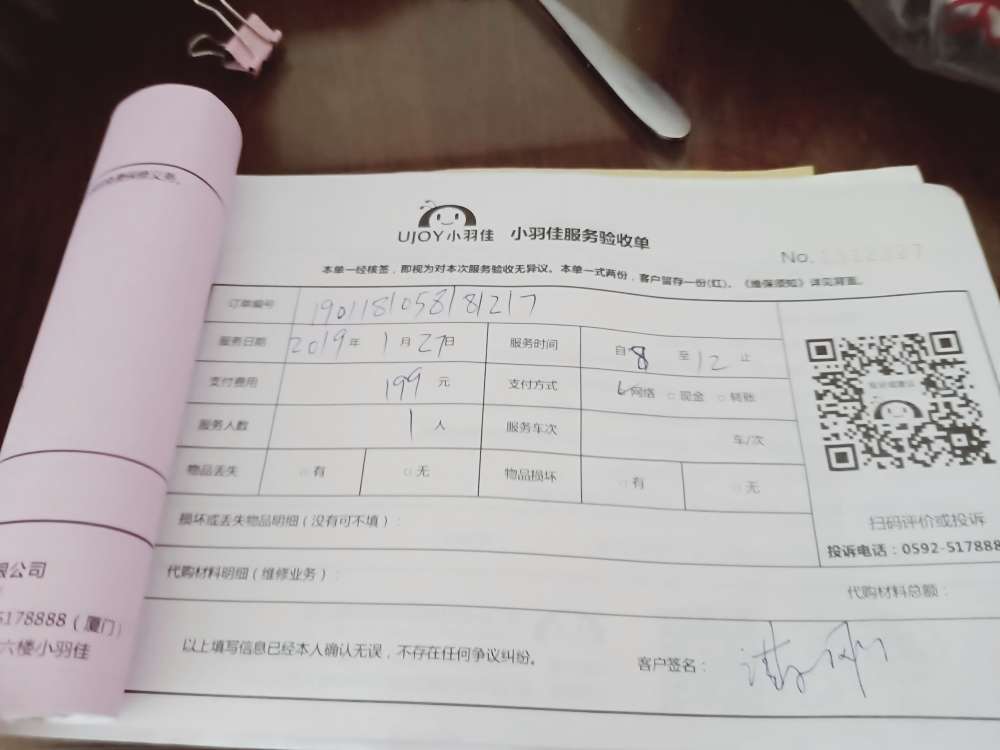 免费保修义务。
UJOY小羽佳 小羽佳服务验收单
No.
本单一经核签，即视为对本次服务验收无异议。本单一式两份，客户留存一份(红)。《维保须知》详见背面。
订单编号 190118105818217
服务日期 2019年 1月27日 服务时间 自8 至12 止
支付费用 199 元 支付方式 网络 □现金 □转账
服务人数 1 人 服务车次 车/次
物品丢失 □有 □无 物品损坏 □有 □无
扫码评价或投诉
投诉电话：0592-517888
损坏或丢失物品明细（没有可不填）：
代购材料明细（维修业务）：
代购材料总额：
以上填写信息已经本人确认无误，不存在任何争议纠纷。
客户签名：
限公司
5178888（厦门）
六楼小羽佳